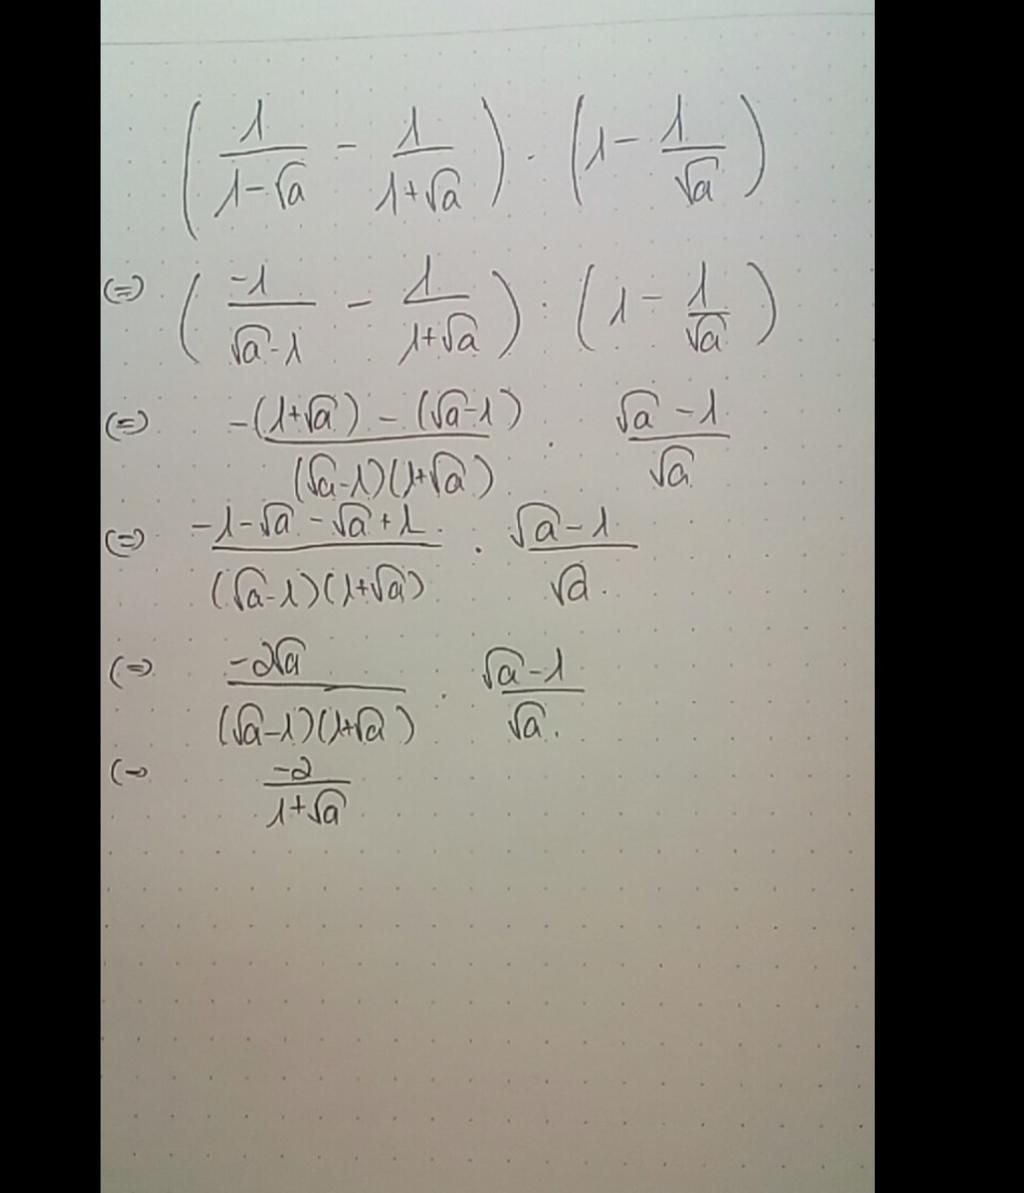 (1/(1-√a) - 1/(1+√a)) · (1 - 1/√a)
(=) (-1/(√a-1) - 1/(1+√a)) · (1 - 1/√a)
(=) (-(1+√a) - (√a-1))/((√a-1)(1+√a)) · (√a-1)/√a
(=) (-1-√a-√a+1)/((√a-1)(1+√a)) · (√a-1)/√a.
(=) -2√a/((√a-1)(1+√a)) · (√a-1)/√a.
(= -2/(1+√a)